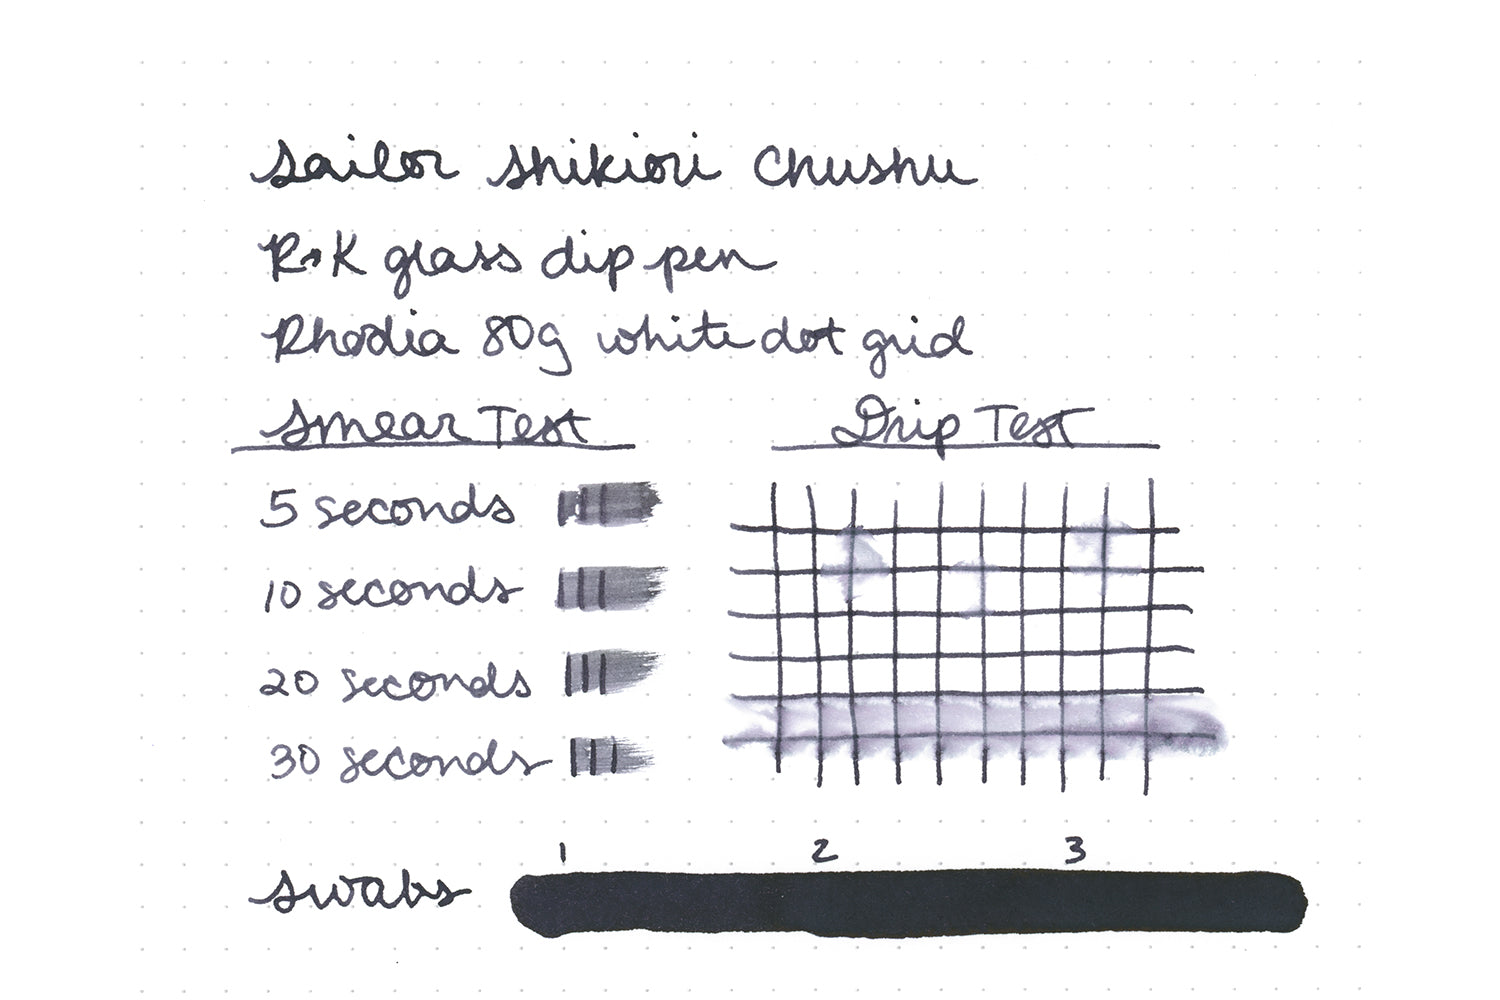 Sailor Shikiori Chushu
R+K glass dip pen
Rhodia 80g white dot grid
Smear Test
5 seconds
10 seconds
20 seconds
30 seconds
Drip Test
1 2 3
Swabs